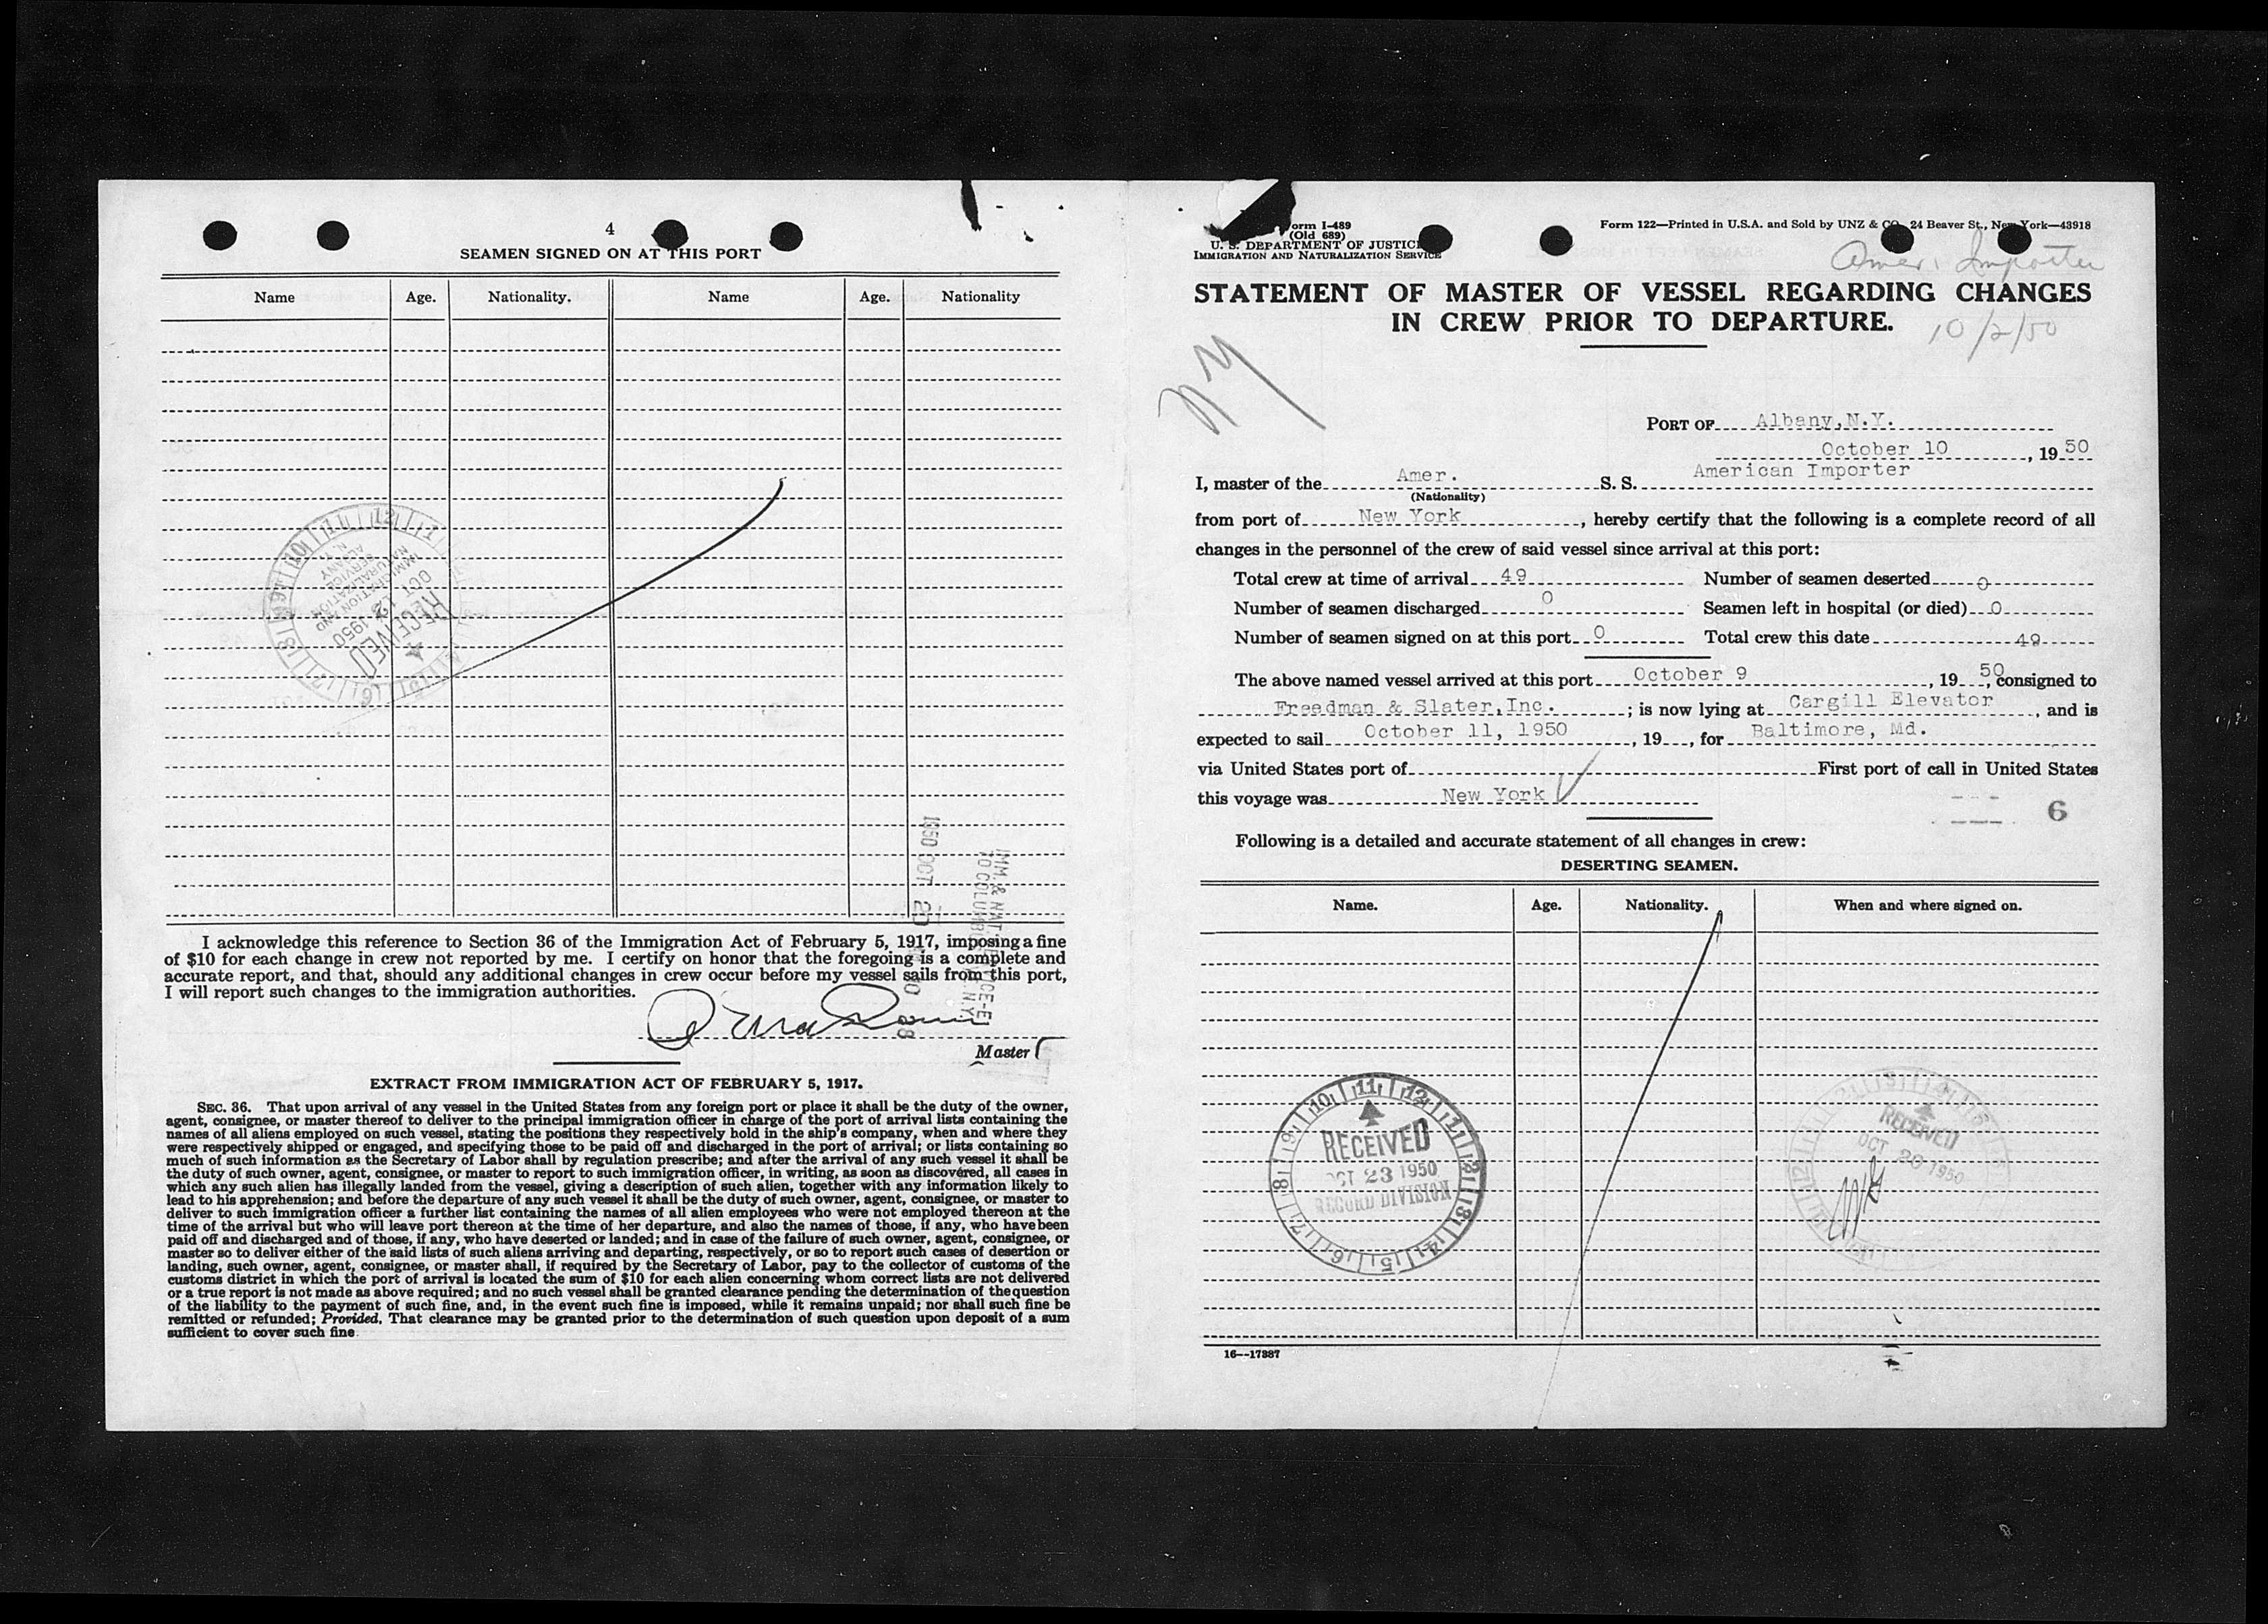 4
SEAMEN SIGNED ON AT THIS PORT
Name Age. Nationality. Name Age. Nationality
RECEIVED
OCT 12 1950
IMMIGRATION AND
NATURALIZATION
SERVICE
ALBANY
N.Y.
1950 OCT 20
IMM. & NAT.
70 COLUMBUS
N.Y.
I acknowledge this reference to Section 36 of the Immigration Act of February 5, 1917, imposing a fine
of $10 for each change in crew not reported by me. I certify on honor that the foregoing is a complete and
accurate report, and that, should any additional changes in crew occur before my vessel sails from this port,
I will report such changes to the immigration authorities.
Master
EXTRACT FROM IMMIGRATION ACT OF FEBRUARY 5, 1917.
SEC. 36. That upon arrival of any vessel in the United States from any foreign port or place it shall be the duty of the owner,
agent, consignee, or master thereof to deliver to the principal immigration officer in charge of the port of arrival lists containing the
names of all aliens employed on such vessel, stating the positions they respectively hold in the ship's company, when and where they
were respectively shipped or engaged, and specifying those to be paid off and discharged in the port of arrival; or lists containing so
much of such information as the Secretary of Labor shall by regulation prescribe; and after the arrival of any such vessel it shall be
the duty of such owner, agent, consignee, or master to report to such immigration officer, in writing, as soon as discovered, all cases in
which any such alien has illegally landed from the vessel, giving a description of such alien, together with any information likely to
lead to his apprehension; and before the departure of any such vessel it shall be the duty of such owner, agent, consignee, or master to
deliver to such immigration officer a further list containing the names of all alien employees who were not employed thereon at the
time of the arrival but who will leave port thereon at the time of her departure, and also the names of those, if any, who have been
paid off and discharged and of those, if any, who have deserted or landed; and in case of the failure of such owner, agent, consignee, or
master so to deliver either of the said lists of such aliens arriving and departing, respectively, or so to report such cases of desertion or
landing, such owner, agent, consignee, or master shall, if required by the Secretary of Labor, pay to the collector of customs of the
customs district in which the port of arrival is located the sum of $10 for each alien concerning whom correct lists are not delivered
or a true report is not made as above required; and no such vessel shall be granted clearance pending the determination of the question
of the liability to the payment of such fine, and, in the event such fine is imposed, while it remains unpaid; nor shall such fine be
remitted or refunded; Provided, That clearance may be granted prior to the determination of such question upon deposit of a sum
sufficient to cover such fine.
orm I-489
(Old 689)
U. S. DEPARTMENT OF JUSTICE
IMMIGRATION AND NATURALIZATION SERVICE
Form 122—Printed in U.S.A. and Sold by UNZ & CO., 24 Beaver St., New York—43918
Amer. Importer
STATEMENT OF MASTER OF VESSEL REGARDING CHANGES
IN CREW PRIOR TO DEPARTURE.
10/2/50
NY
PORT OF Albany, N.Y.
October 10, 1950
I, master of the Amer. S. S. American Importer
(Nationality)
from port of New York, hereby certify that the following is a complete record of all
changes in the personnel of the crew of said vessel since arrival at this port:
Total crew at time of arrival 49 Number of seamen deserted 0
Number of seamen discharged 0 Seamen left in hospital (or died) 0
Number of seamen signed on at this port 0 Total crew this date 49
The above named vessel arrived at this port October 9, 19 50, consigned to
Freedman & Slater, Inc.; is now lying at Cargill Elevator, and is
expected to sail October 11, 1950, 19 , for Baltimore, Md.
via United States port of First port of call in United States
this voyage was New York
6
Following is a detailed and accurate statement of all changes in crew:
DESERTING SEAMEN.
Name. Age. Nationality. When and where signed on.
RECEIVED
OCT 23 1950
RECORD DIVISION
RECEIVED
OCT 20 1950
16—17887